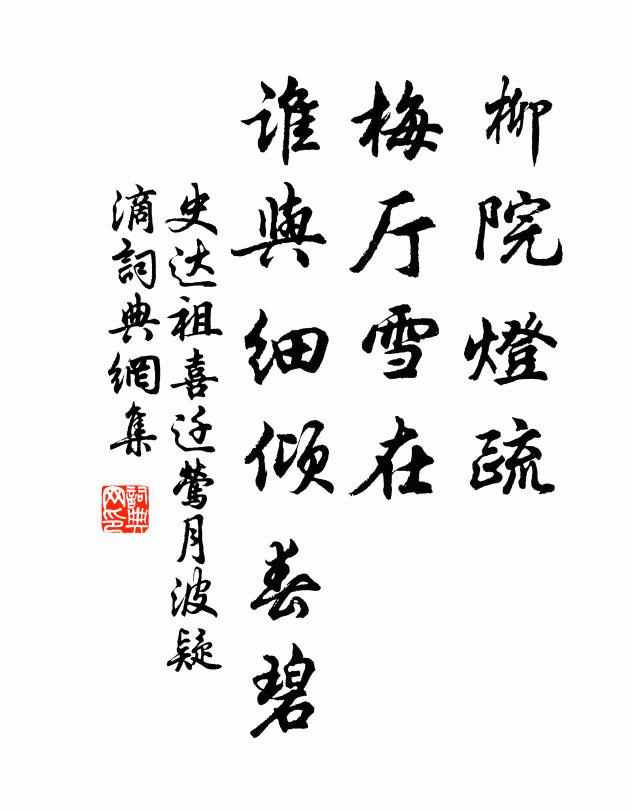 柳院燈疏
梅厅雪在
谁與细倾春碧
史达祖喜迁莺月波疑
滴詞典網集
詞典网印